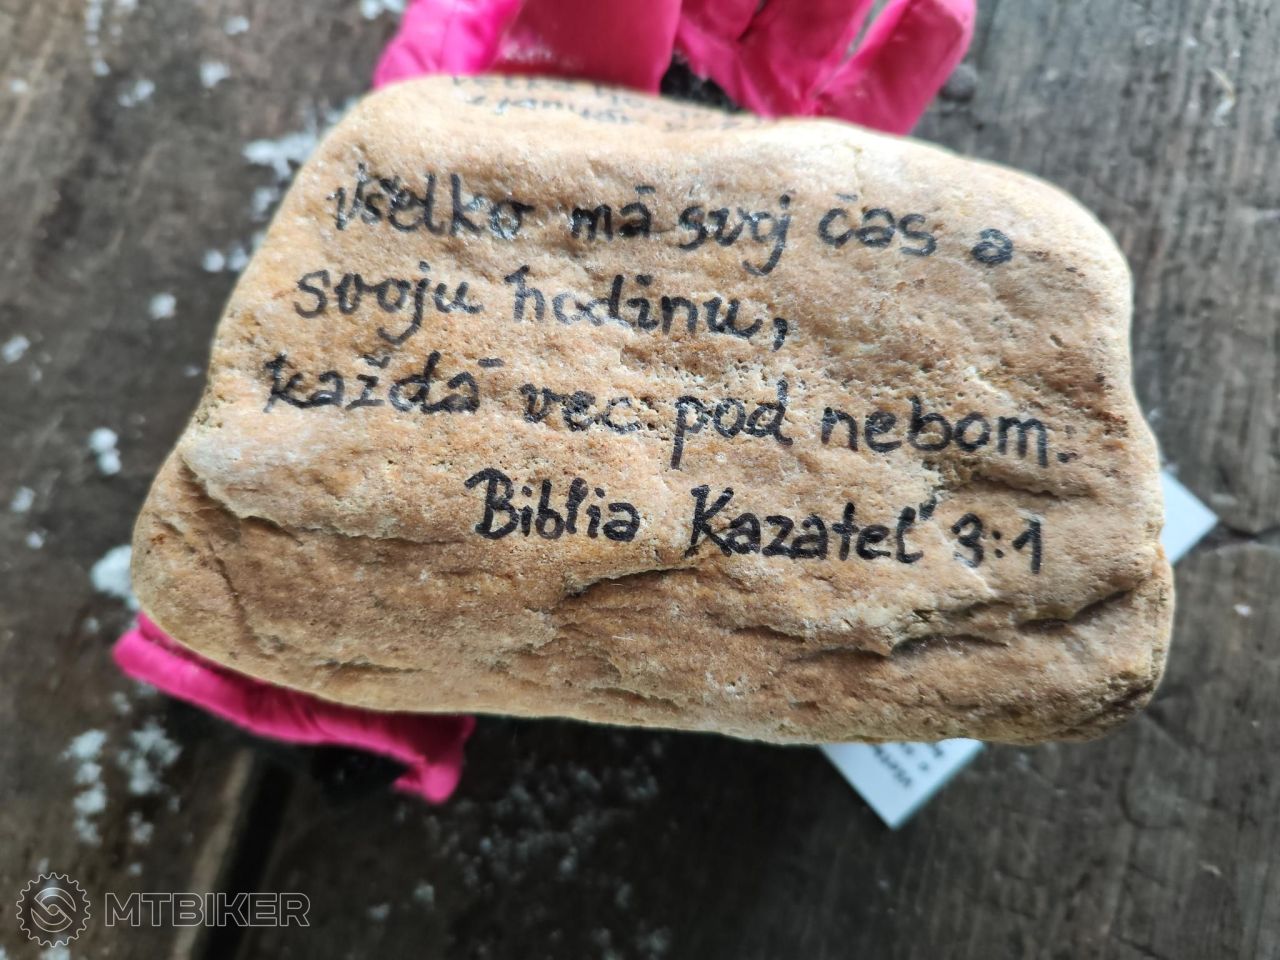 Všelko má svoj čas a
svoju hodinu,
každá vec pod nebom.
Biblia Kazateľ 3:1
MTBIKER